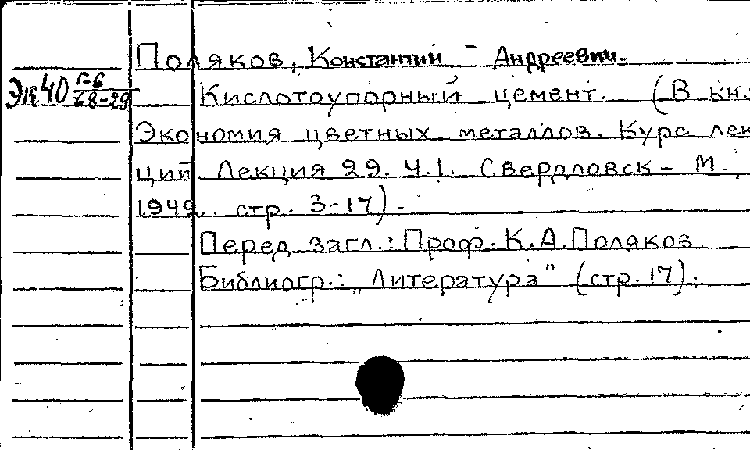 Поляков, Константин Андреевич.
Э 40 Г-6
28-29
Кислотоупорный цемент. (В кн.:
Экономия цветных металлов. Курс лек
ций Лекция 29. Ч.1. Свердловск - М.,
1942. стр. 3-17).
Перед загл.: Проф. К.А. Поляков
Библиогр.: „Литература" (стр. 17).